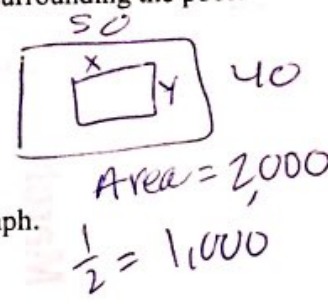 surrounding the
50
X
Y
40
Area = 2,000
ph.
1/2 = 1,000